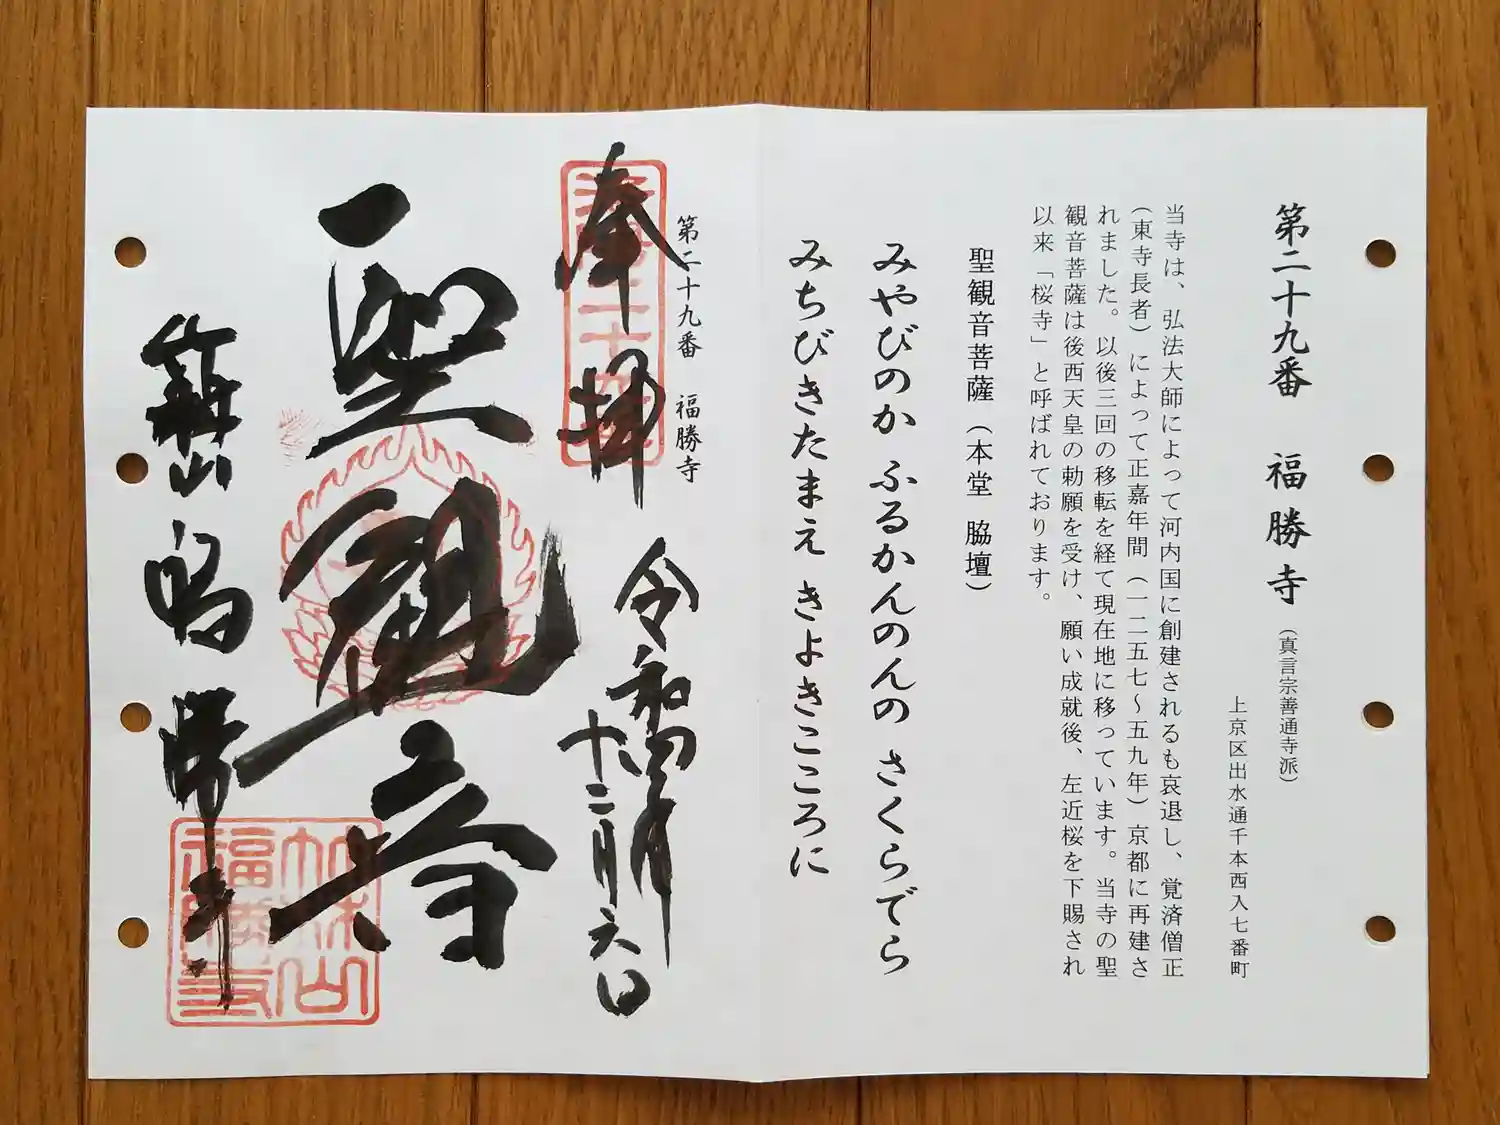 第二十九番 福勝寺（真言宗善通寺派）
上京区出水通千本西入七番町
当寺は、弘法大師によって河内国に創建されるも哀退し、覚済僧正
（東寺長者）によって正嘉年間（一二五七～五九年）京都に再建さ
れました。以後三回の移転を経て現在地に移っています。当寺の聖
観音菩薩は後西天皇の勅願を受け、願い成就後、左近桜を下賜され
以来「桜寺」と呼ばれております。
聖観音菩薩（本堂 脇壇）
みやびのか ふるかんのんの さくらでら
みちびきたまえ きよきこころに
第二十九番 福勝寺
奉拝
令和四年
十二月六日
聖観音
竹林山 福勝寺
竹林山
福勝寺